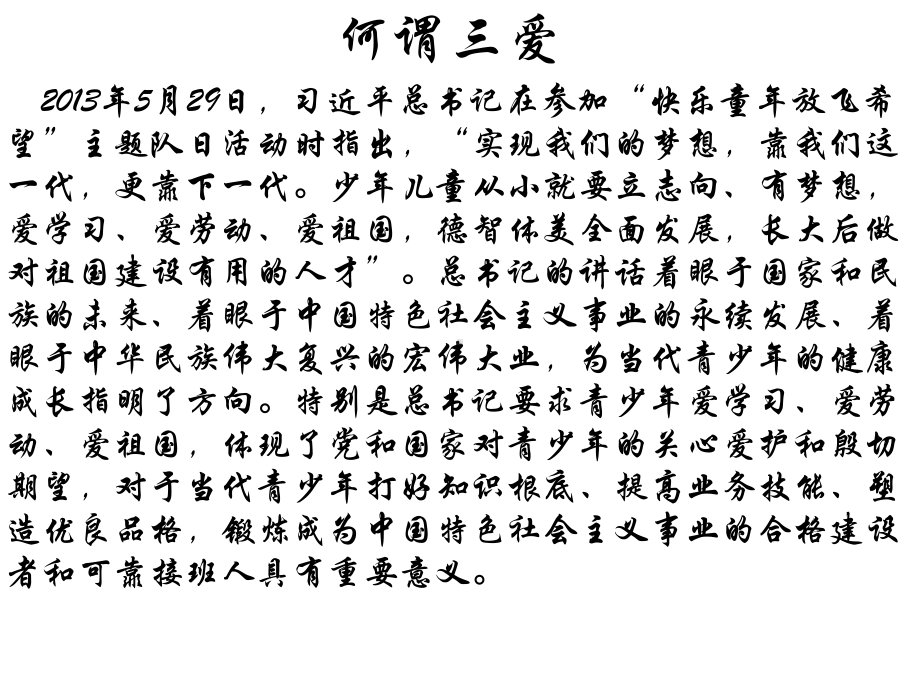 何谓三爱
2013年5月29日，习近平总书记在参加“快乐童年放飞希
望”主题队日活动时指出，“实现我们的梦想，靠我们这
一代，更靠下一代。少年儿童从小就要立志向、有梦想，
爱学习、爱劳动、爱祖国，德智体美全面发展，长大后做
对祖国建设有用的人才”。总书记的讲话着眼于国家和民
族的未来、着眼于中国特色社会主义事业的永续发展、着
眼于中华民族伟大复兴的宏伟大业，为当代青少年的健康
成长指明了方向。特别是总书记要求青少年爱学习、爱劳
动、爱祖国，体现了党和国家对青少年的关心爱护和殷切
期望，对于当代青少年打好知识根底、提高业务技能、塑
造优良品格，锻炼成为中国特色社会主义事业的合格建设
者和可靠接班人具有重要意义。